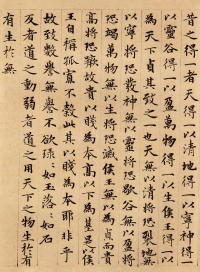 昔之得一者天得一以清地得一以寧神得一
以靈谷得一以盈萬物得一以生侯王得一以
為天下貞其致之一也天無以清將恐裂地
以寧將恐發神無以靈將恐歇谷無以盈將
恐竭萬物無以生將恐滅侯王無以貞而貴
高將恐蹶故貴以賤為本高以下為基是以侯
王自稱孤寡不穀此其以賤為本耶非乎
故致數譽無譽不欲琭〻如玉落〻如石
反者道之動弱者道之用天下之物生於有
有生於無